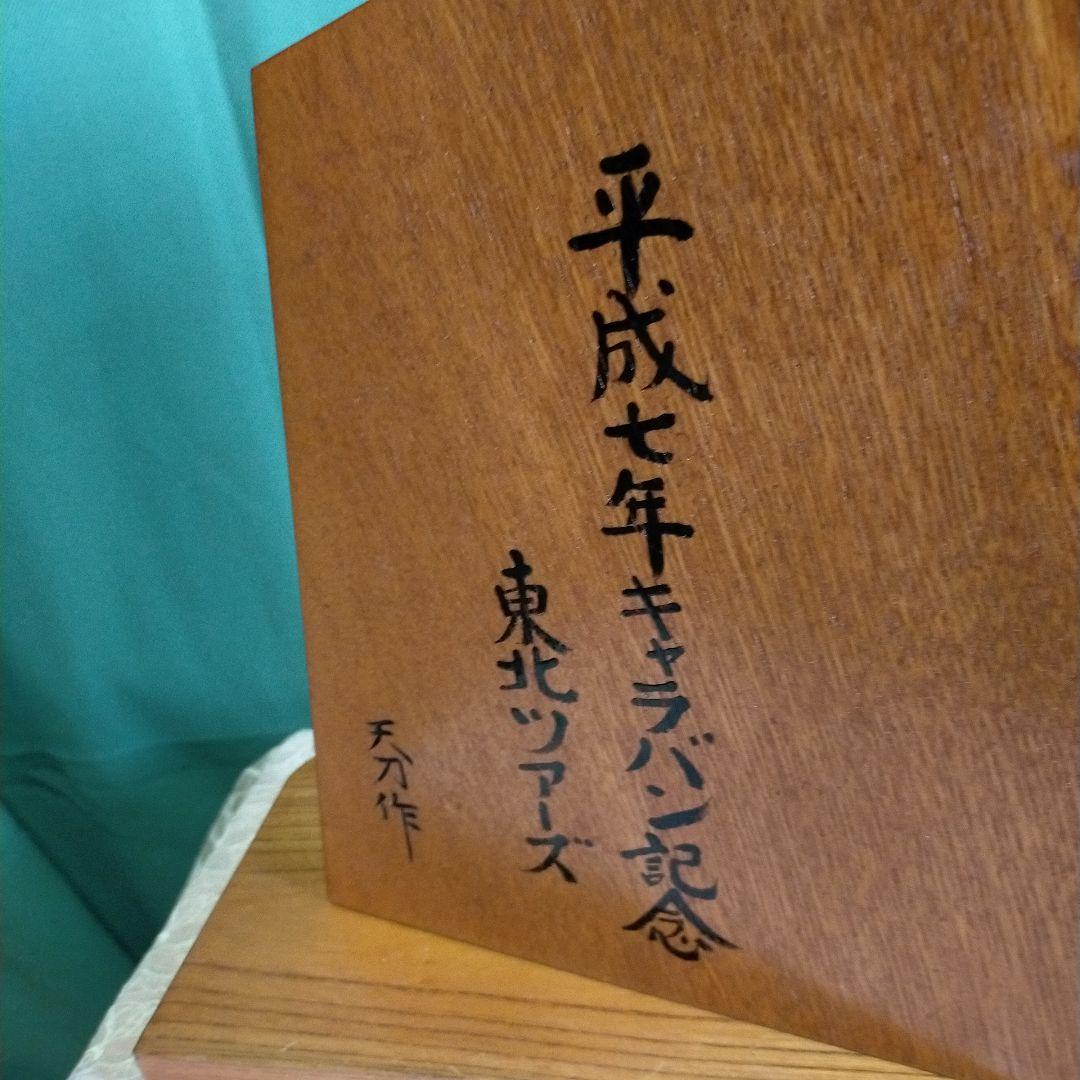 平成七年キャラバン記念
東北ツアーズ
天刀作